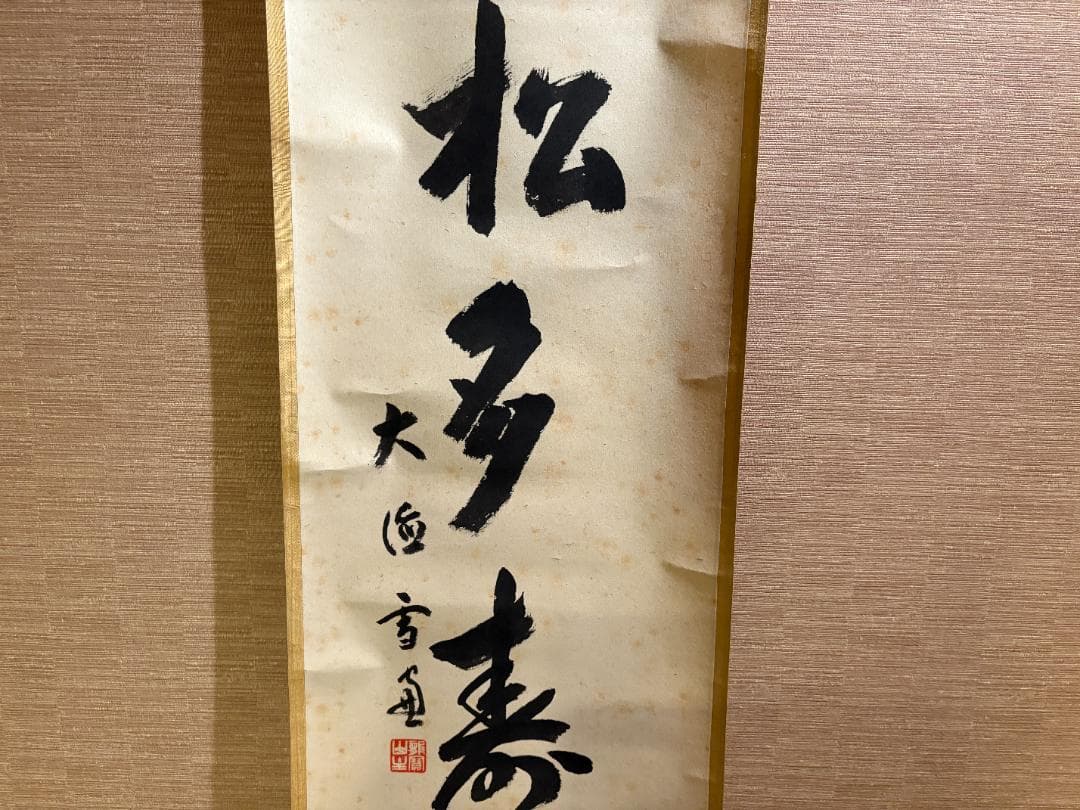 松多寿
大徳雪窗